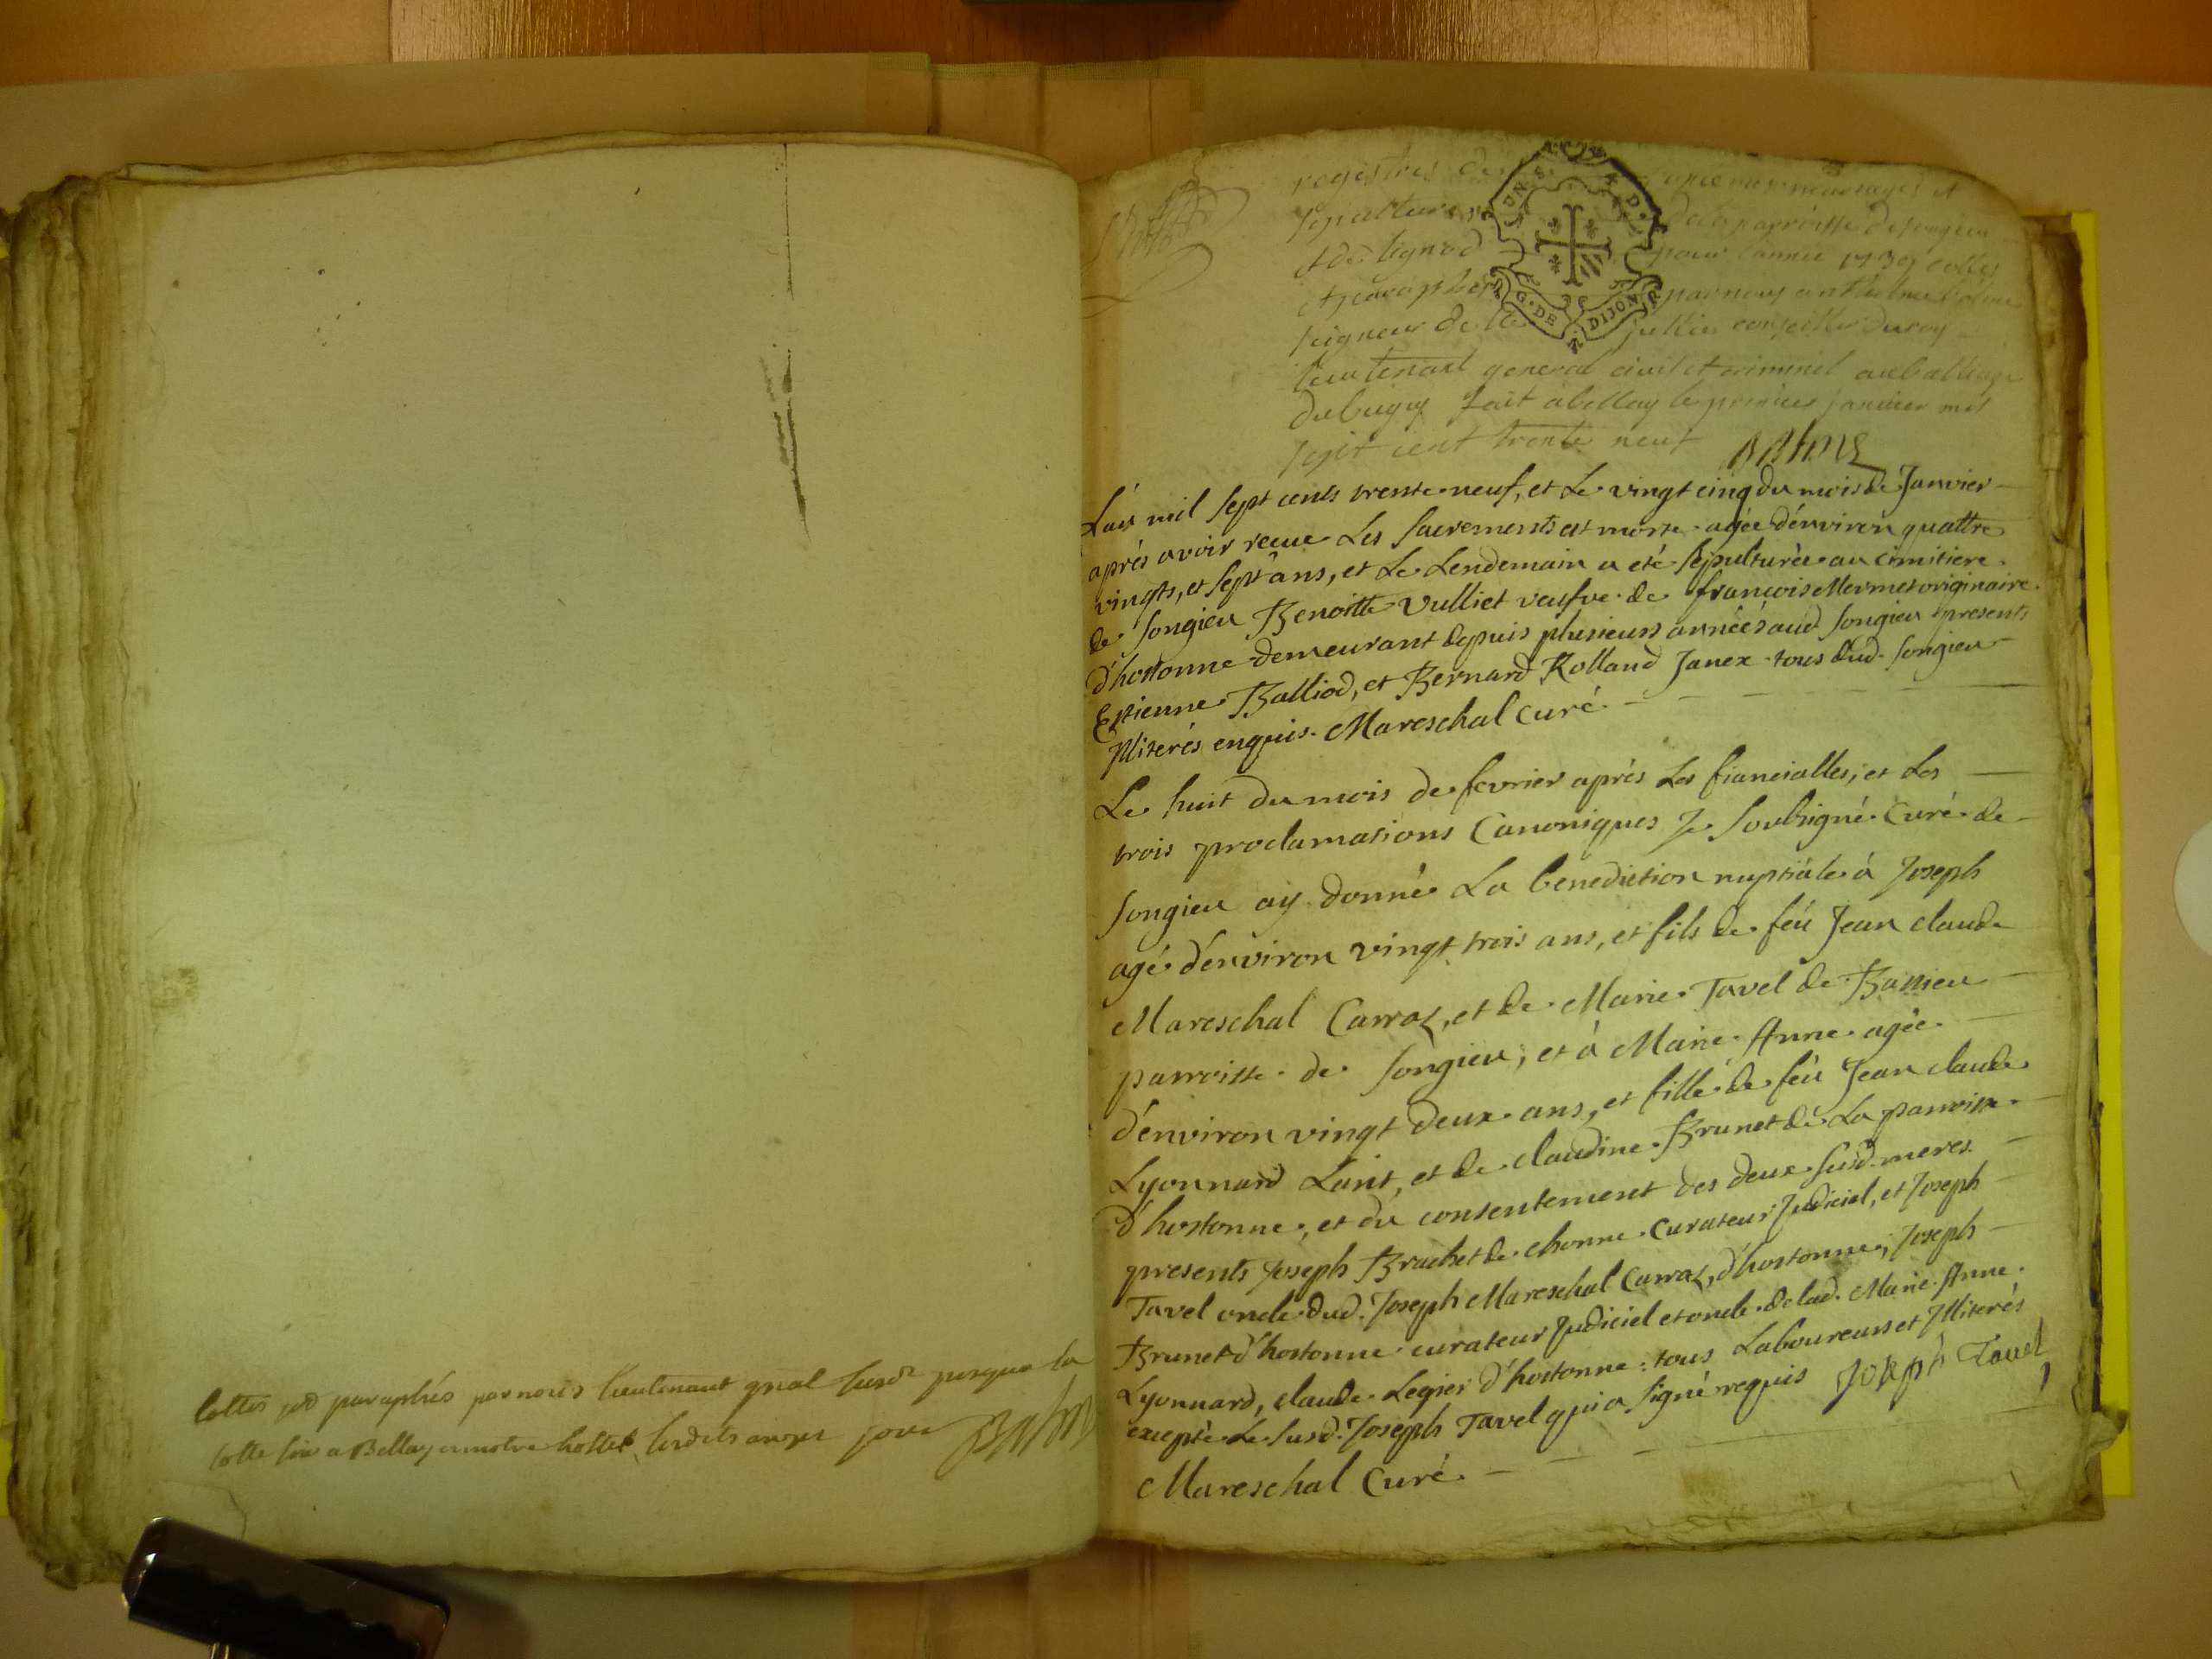 cottés et paraphés par nous lieutenant gnal susd jusqua la
cotte a Bellay en notre hotel lesdits an et jour Balme
registres de mariages et
sepultures de la parroisse de songieu
et de lignod pour l'année 1739 cottés
et paraphés par nous anthelme
seigneur de conseiller du roy
lieutenant general civil et criminel au balliage
du bugey fait a bellay le premier janvier mil
sept cent trente neuf Balme
G. DE DIJON
L'an mil sept cents trente neuf, et le vingt cinq du mois de Janvier
aprés avoir reçue les sacrements est morte agée d'énviron quattre
vingts, et sept ans, et le lendemain a eté sépulturée au cimitiere
de songieu Benoitte Vulliet veufve de françois Mermet originaire
d'hostonne demeurant depuis plusieurs années aud songieu presents
Estienne Balliod, et Bernard Rolland Janex tous dud. songieu
Illiterés enquis. Mareschal Curé.
Le huit du mois de fevrier aprés les fiancialles, et les
trois proclamations Canoniques Je soubsigné Curé de
songieu ay donné la benediction nuptiale á Joseph
agé d'énviron vingt trois ans, et fils de feü Jean claude
Mareschal Carraz, et de Marie Tavel de Bassieu
parroisse de songieu, et á Marie Anne agée
d'énviron vingt deux ans, et fille de feü Jean claude
Lyonnard Lant, et de claudine Brunet de la parroisse
d'hostonne, et du consentement des deux susd. meres.
presents Joseph Brachet de chonne Curateur Judiciel, et Joseph
Tavel oncle dud. Joseph Mareschal Carraz, d'hostonne, Joseph
Brunet d'hostonne curateur Judiciel et oncle de lad. Marie Anne
Lyonnard, claude Legier d'hostonne: tous Laboureurs et Illiterés
excepté le susd. Joseph Tavel qui a signé requis Joseph Tavel
Mareschal Curé